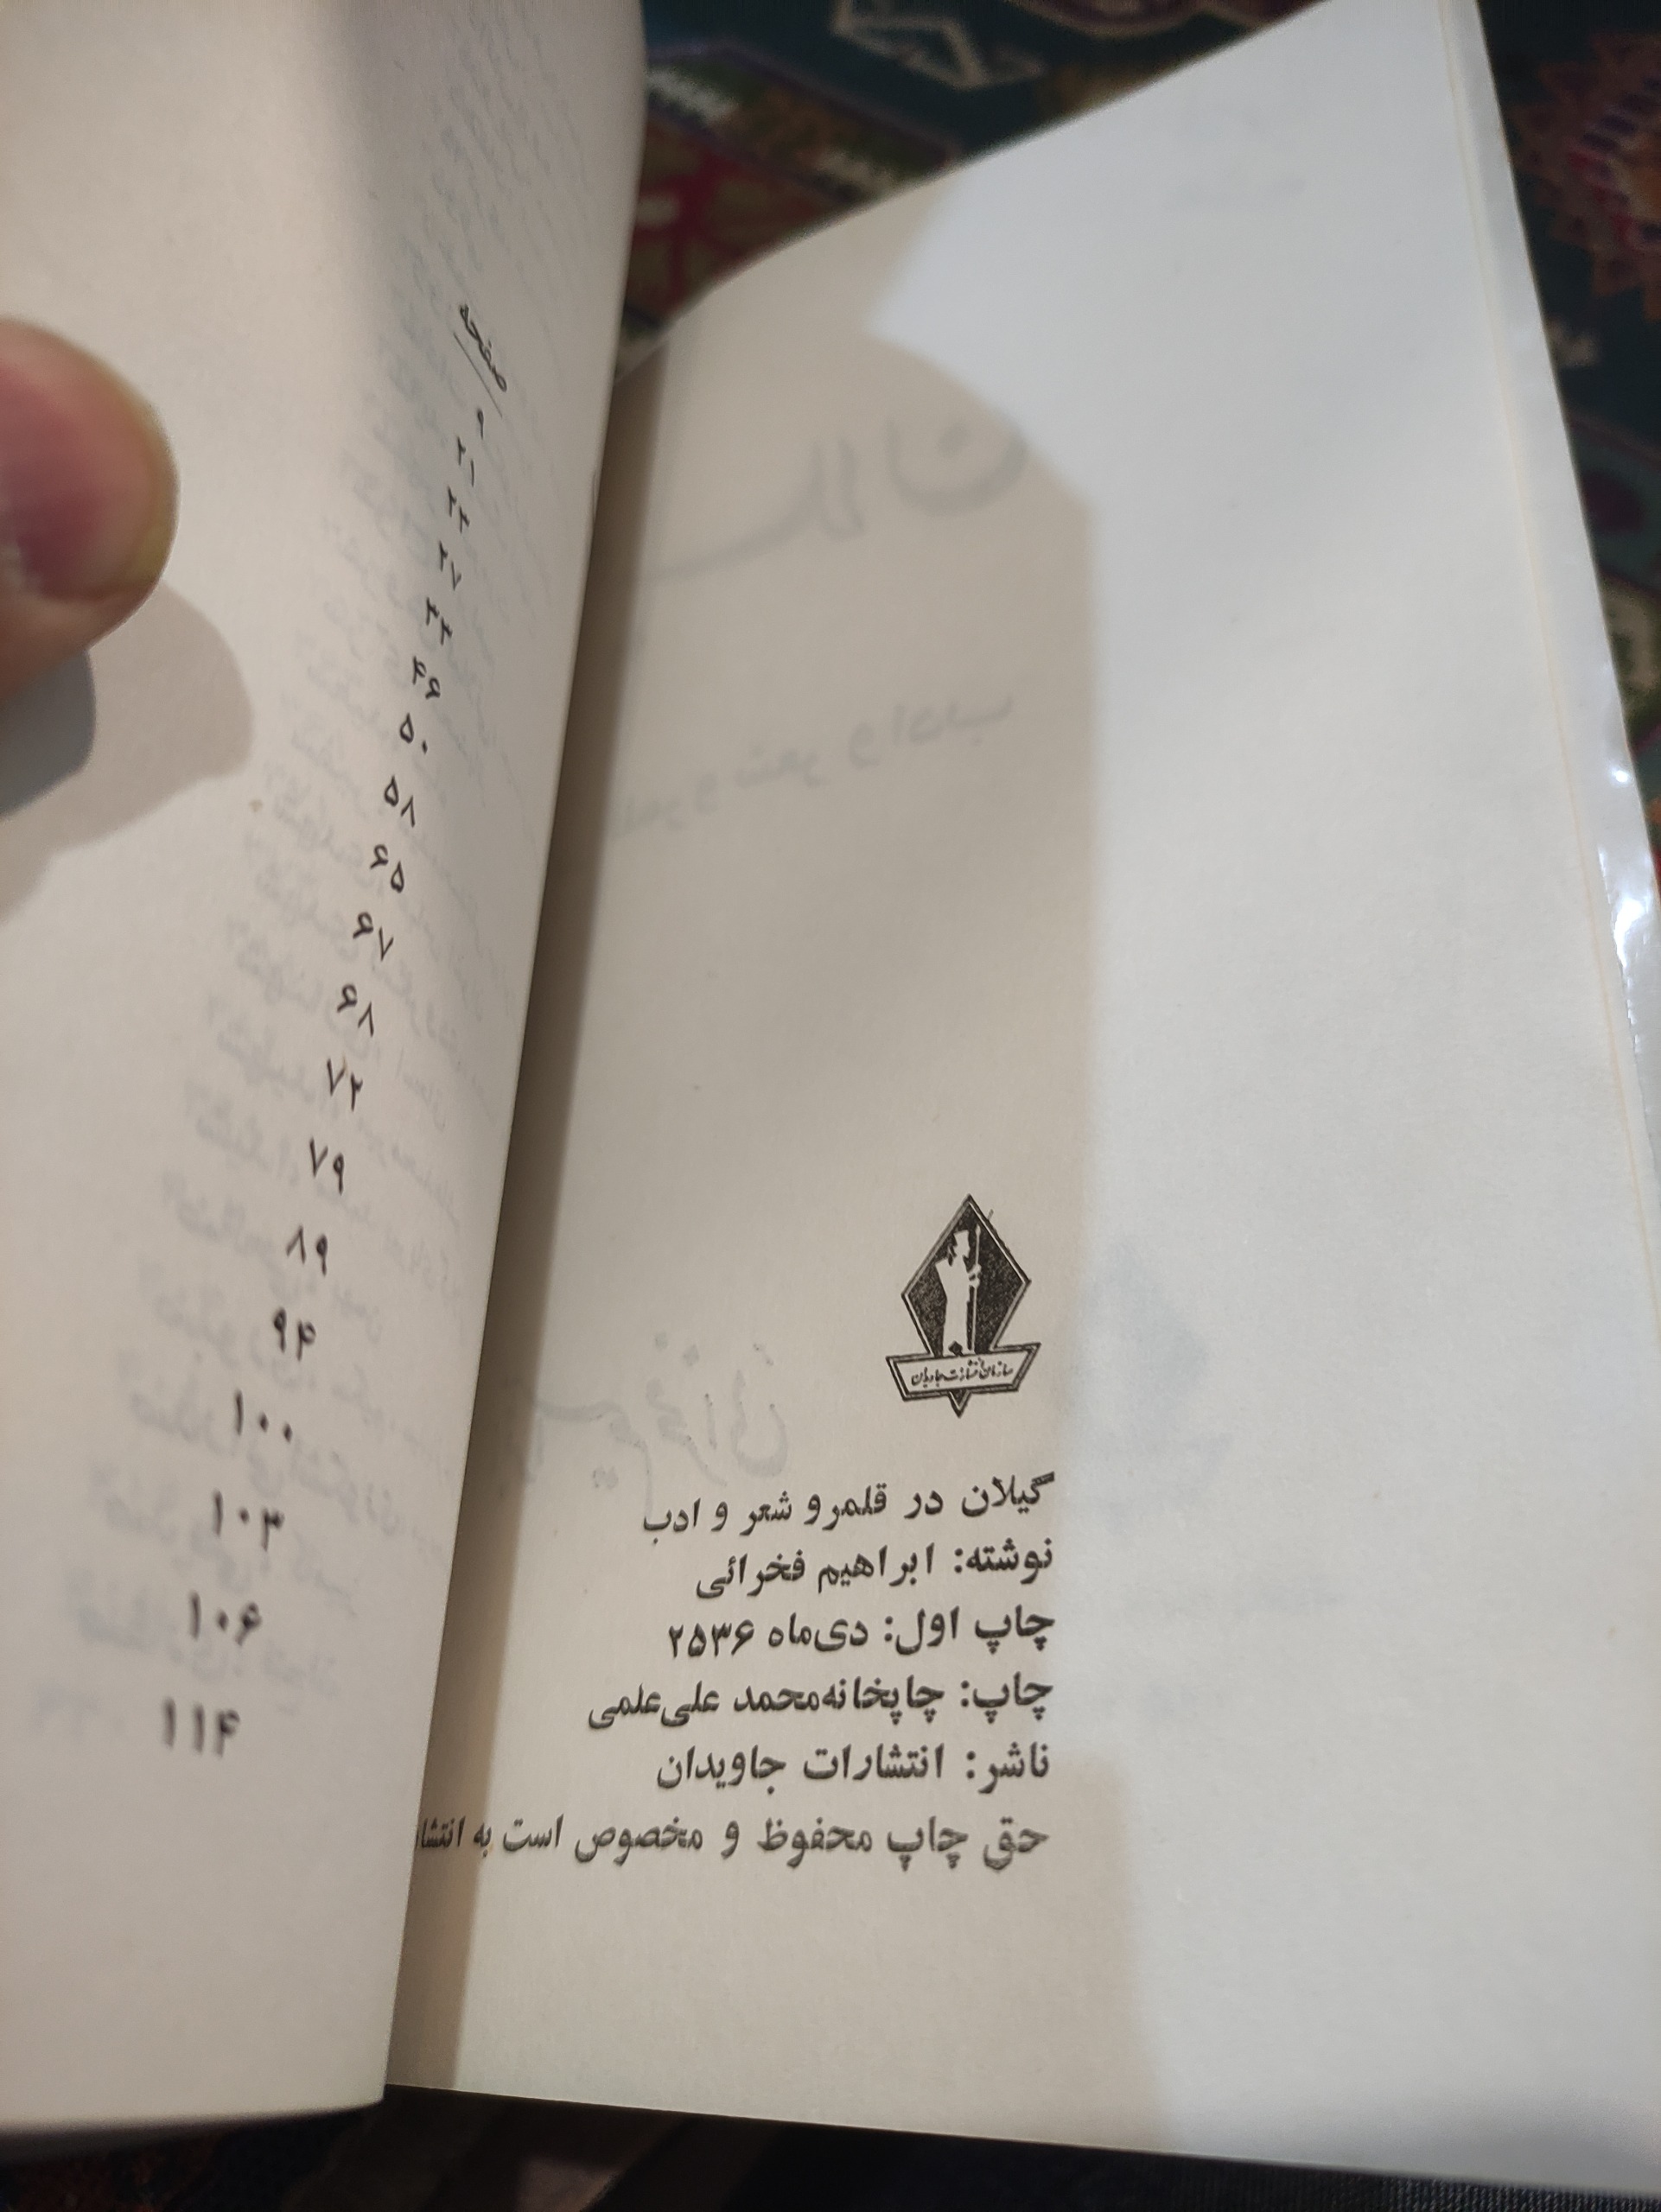 سازمان انتشارات جاویدان
گیلان در قلمرو شعر و ادب
نوشته: ابراهیم فخرائی
چاپ اول: دی‌ماه ۲۵۳۶
چاپ: چاپخانه‌محمد علی‌علمی
ناشر: انتشارات جاویدان
حق چاپ محفوظ و مخصوص است به
صفحه
۹
۲۱
۲۳
۲۷
۳۳
۴۹
۵۰
۵۸
۶۵
۶۷
۶۸
۷۲
۷۹
۸۹
۹۴
۱۰۰
۱۰۳
۱۰۶
۱۱۴